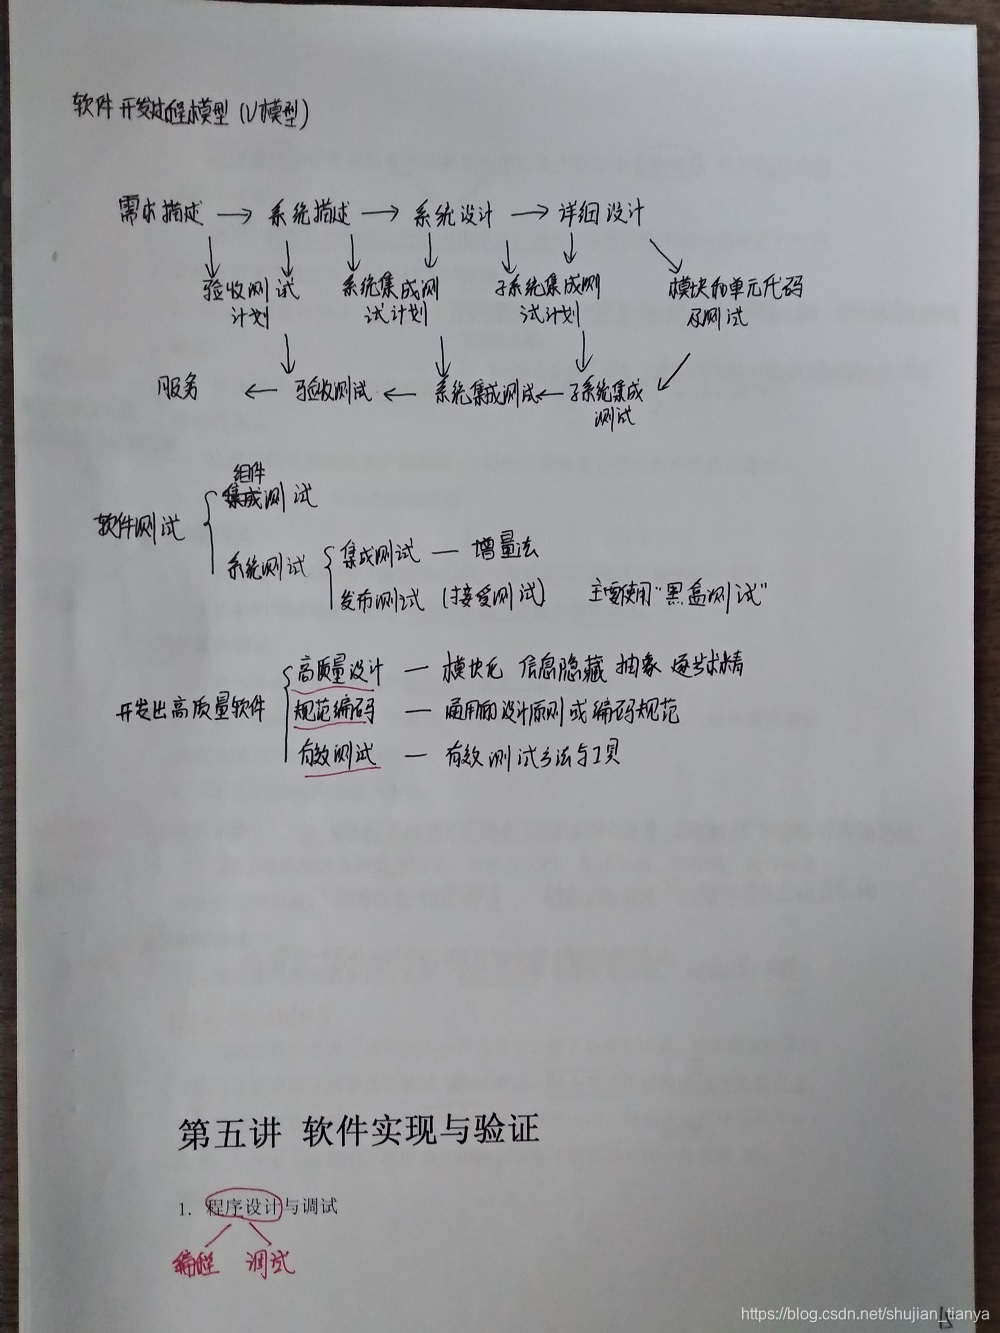 软件开发过程模型（V模型）
需求描述 → 系统描述 → 系统设计 → 详细设计
验收测试 系统集成测 子系统集成测 模块和单元代码
计划 试计划 试计划 及测试
服务 ← 验收测试 ← 系统集成测试 ← 子系统集成
测试
组件
集成测试
软件测试
系统测试 集成测试 — 增量法
发布测试（接受测试） 主要使用“黑盒测试”
高质量设计 — 模块化 信息隐藏 抽象 逐步求精
开发出高质量软件 规范编码 — 通用的设计原则或编码规范
有效测试 — 有效测试方法与工具
第五讲 软件实现与验证
1. 程序设计与调试
编程 调试
https://blog.csdn.net/shujian_tianya